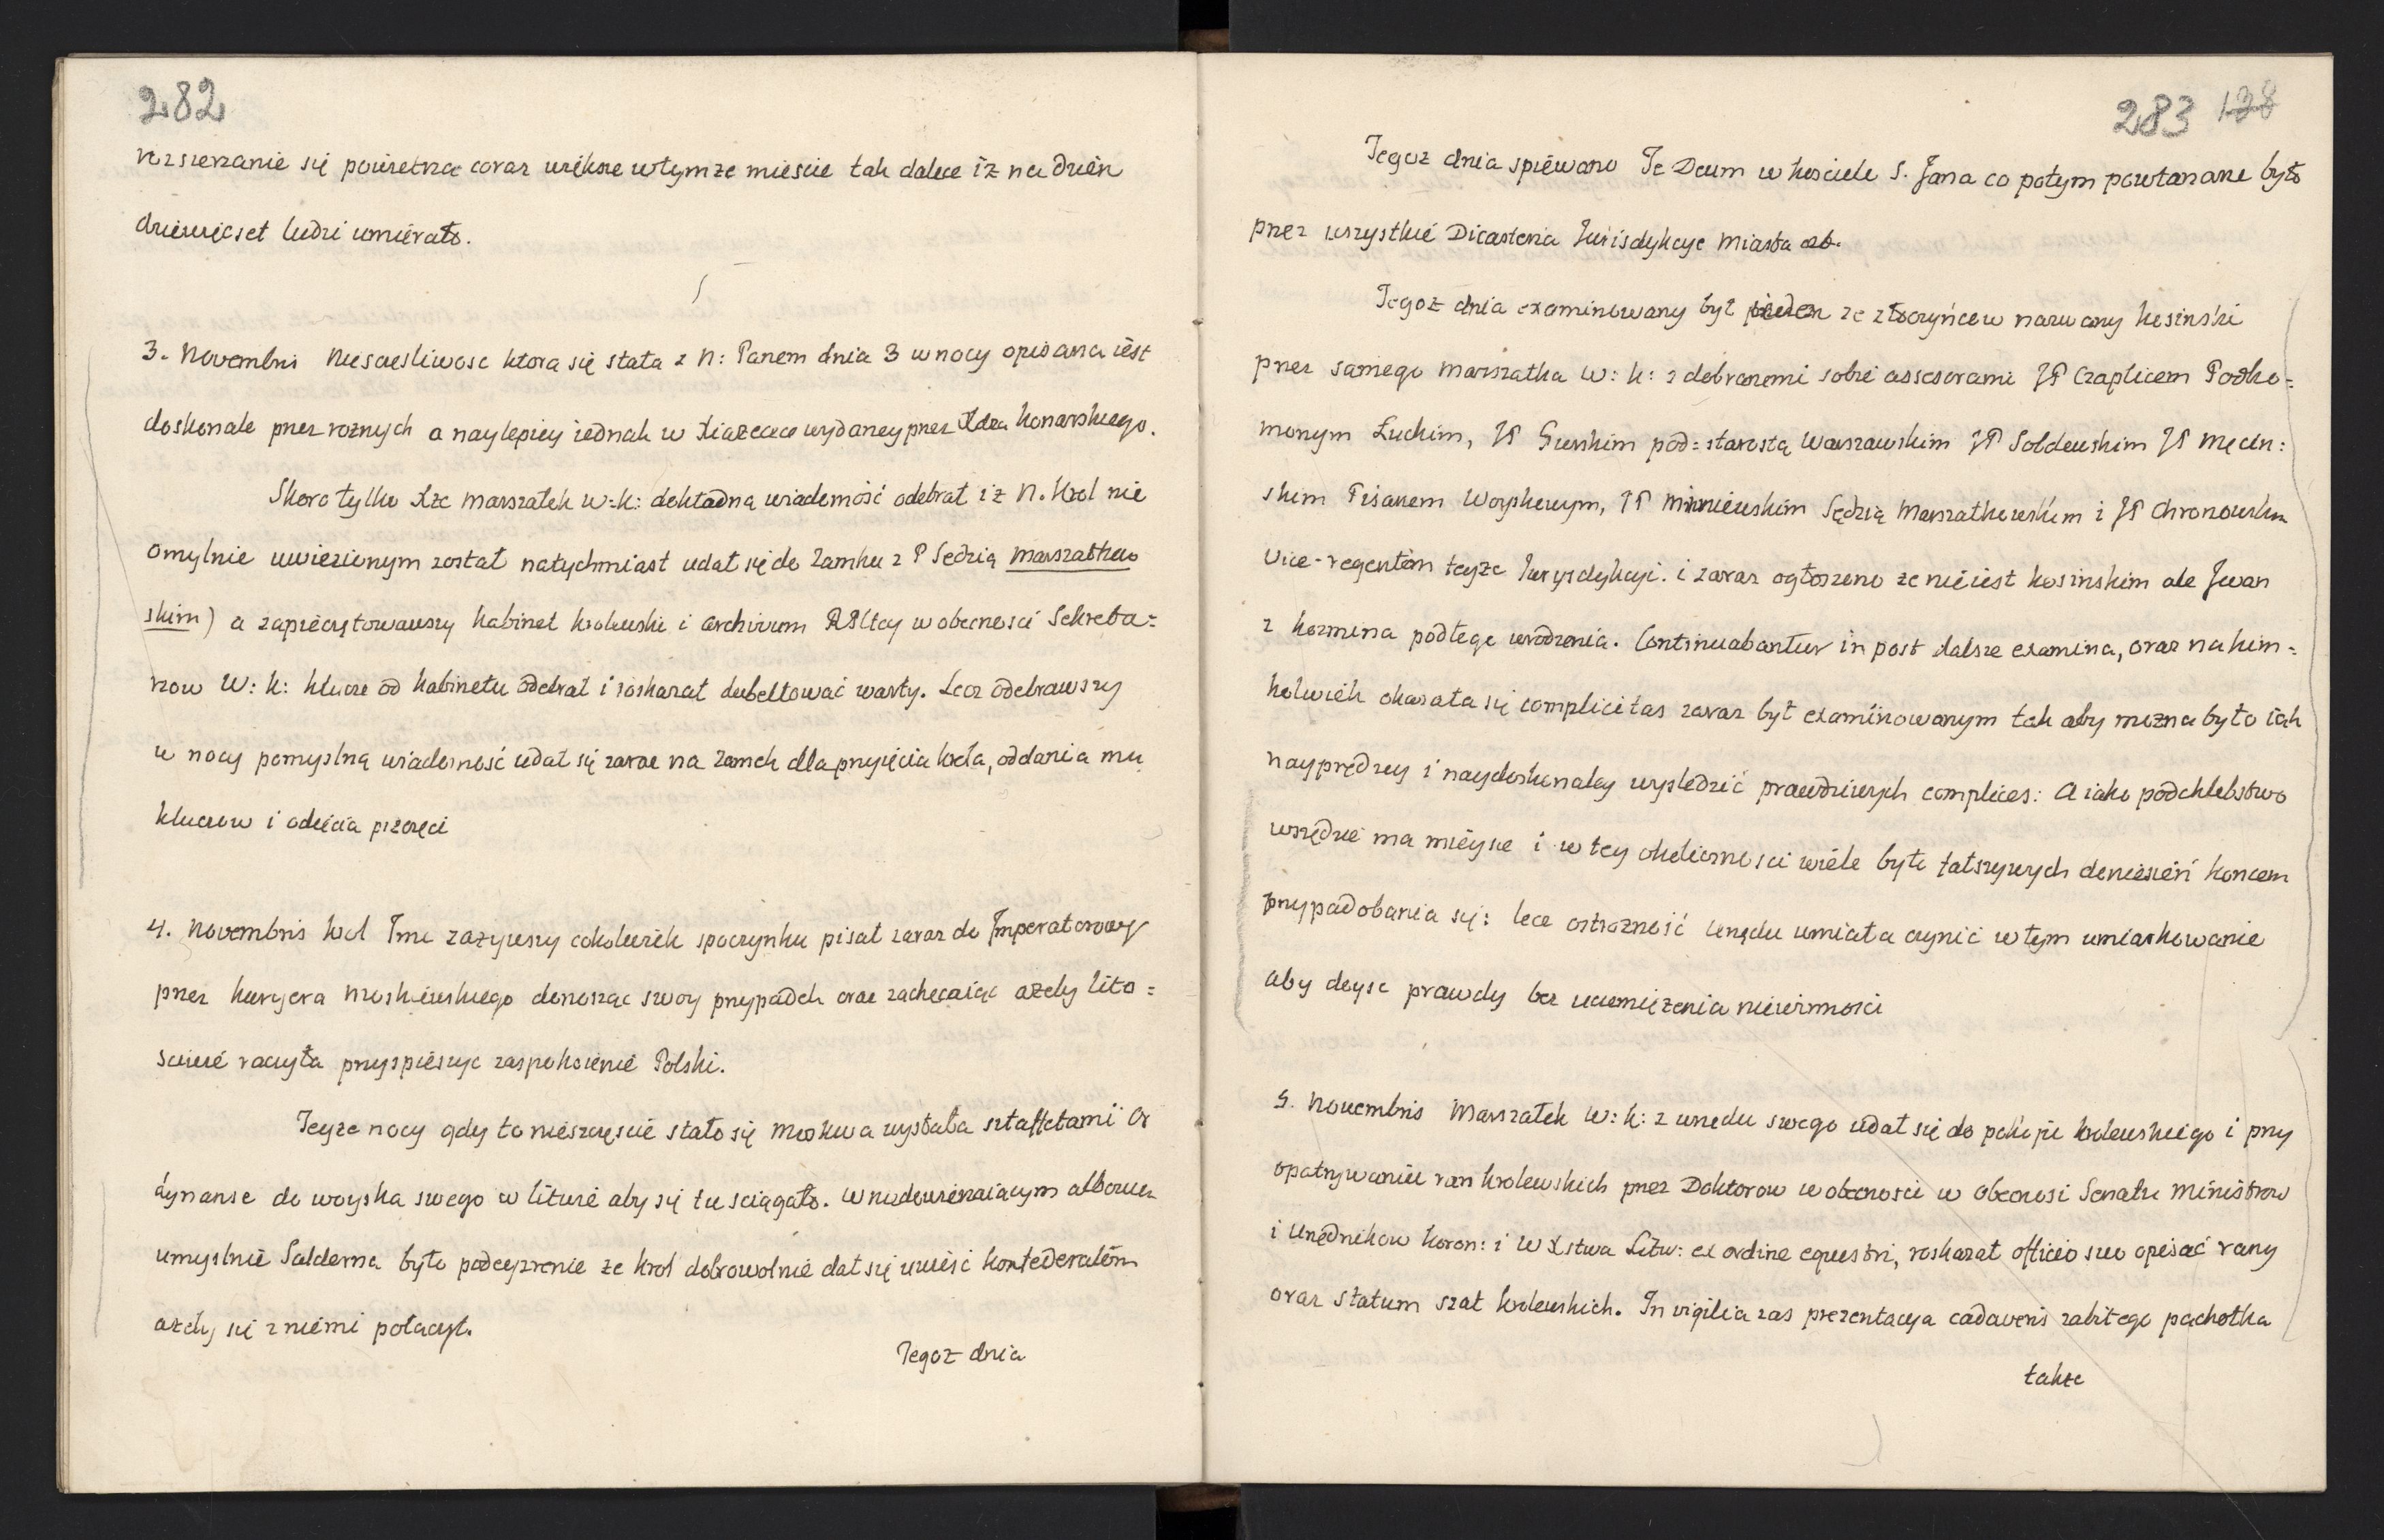 282
rozszerzanie się powietrza coraz większe w tymze miescie tak dalece iz na dzien
dziewięcset ludzi umierało.
3. Novembris Niesczesliwosc ktora się stała z N: Panem dnia 3 w nocy opisana iest
doskonale przez roznych a naylepiey iednak w Xiążecce wydaney przez Xdza Konarskiego.
Skoro tylko Xże Marszałek W: K: dokładną wiadomość odebrał iż N. Krol nie
omylnie uwiezionym został natychmiast udał się do Zamku z P Sędzią Marszałkow
skim) a zapieczętowawszy kabinet krolewski i archivum Rzltey w obecnosci Sekreta=
rzow W: K: klucze od kabinetu odebrał i roskazał dubeltować warty. Lecz odebrawszy
w nocy pomyslną wiadomość udał się zaraz na Zamek dla przyięcia krola, oddania mu
kluczow i odięcia pieczęci
4. Novembris Krol Jmc zażywszy cokolwiek spoczynku pisał zaraz do Imperatorowy
przez kuryera moskiewskiego donosząc swoy przypadek oraz zachęcaiąc ażeby lito=
sciwie raczyła przyspieszyc zaspokoienie Polski.
Teyze nocy gdy to nieszczęscie stało się Moskwa wysłała sztaffetami Or
dynanse do woyska swego w Litwie aby się tu sciągało. W niedowierzaiącym albowiem
umyslnie Salderna było podeyzrenie ze krol dobrowolnie dał się uwieść konfederatom
ażeby się z niemi połączył.
Tegoz dnia
283 138
Tegoz dnia spiewano Te Deum w kosciele S. Jana co potym powtarzane było
przez wszystkie Dicasteria Jurisdykcye Miasta etc.
Tegoz dnia examinowany był jeden ze złoczyńcow nazwany Kosinski
przez samego Marszałka W: K: z dobranemi sobie assesorami JP Czaplicem Podko=
morzym Łuckim, JP Gurskim pod=starostą Warszawskim JP Soldenskim JP Męcin:
skim Pisarzem Woyskowym, JP Mirniewskim Sędzią Marszałkowskim i JP Chronowskim
Vice-regentem teyze Jurysdykcyi. i zaraz ogłoszono ze nie iest Kosinskim ale Jwan
z Kozmina podłego urodzenia. Continuabantur in post dalsze examina, oraz na kim=
kolwiek okazała się complicitas zaraz był examinowanym tak aby mozna było iak
nayprędzey i naydoskonaley wysledzić prawdziwych complices: A iako podchlebstwo
wszędzie ma mieysce i w tey okolicznosci wiele było fałszywych doniesień koncem
przypadobania się: lecz ostrożność Urzędu umiała czynić w tym umiarkowanie
aby doysc prawdy bez uciemiężenia niewinnosci
5. Novembris Marszałek W: K: z urzedu swego udał się do pokoju krolewskiego i przy
opatrywaniu ran krolewskich przez Doktorow w obecnosci w obecnosi Senatu Ministrow
i Urzędnikow Koron: i W Xstwa Litw: ex ordine equestri, roskazał officio suo opisać rany
oraz statum szat krolewskich. In vigilia zas prezentacya cadaveris zabitego pachołka
takze